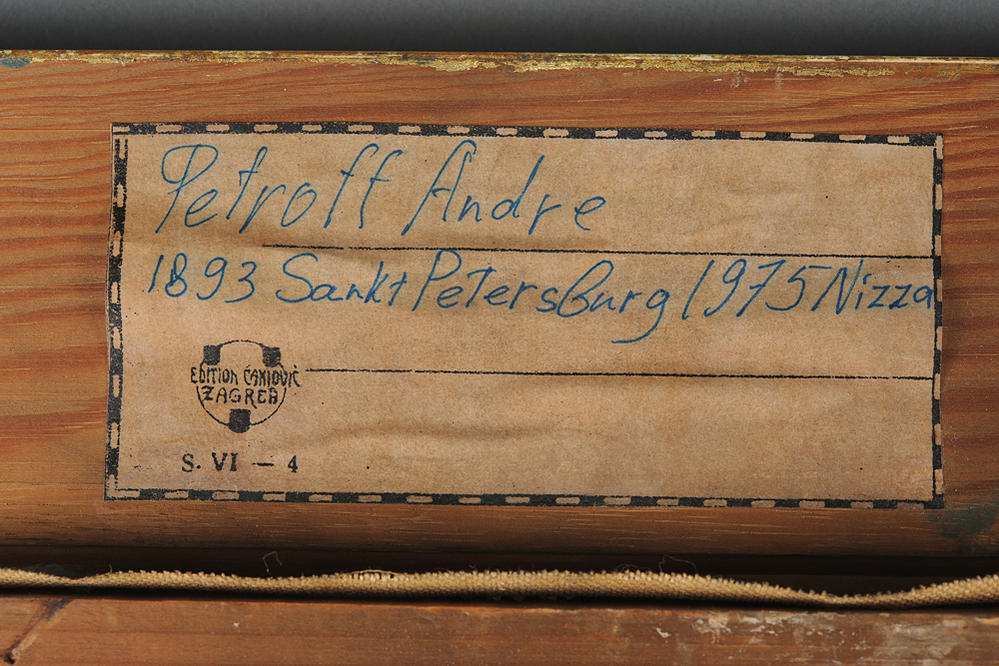 Petroff Andre
1893 Sankt Petersburg 1975 Nizza
EDITION ČAKLOVIĆ
ZAGREB
S. VI — 4